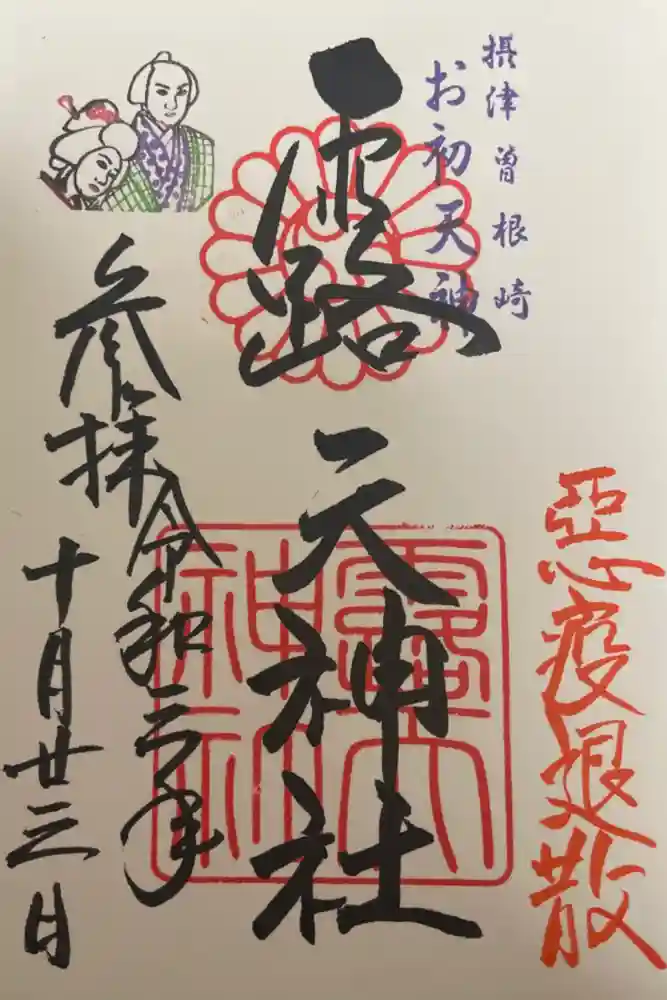 摂津曽根崎
お初天神
惡疫退散
露天神社
露天
神社
参拝
令和三年
十月廿三日